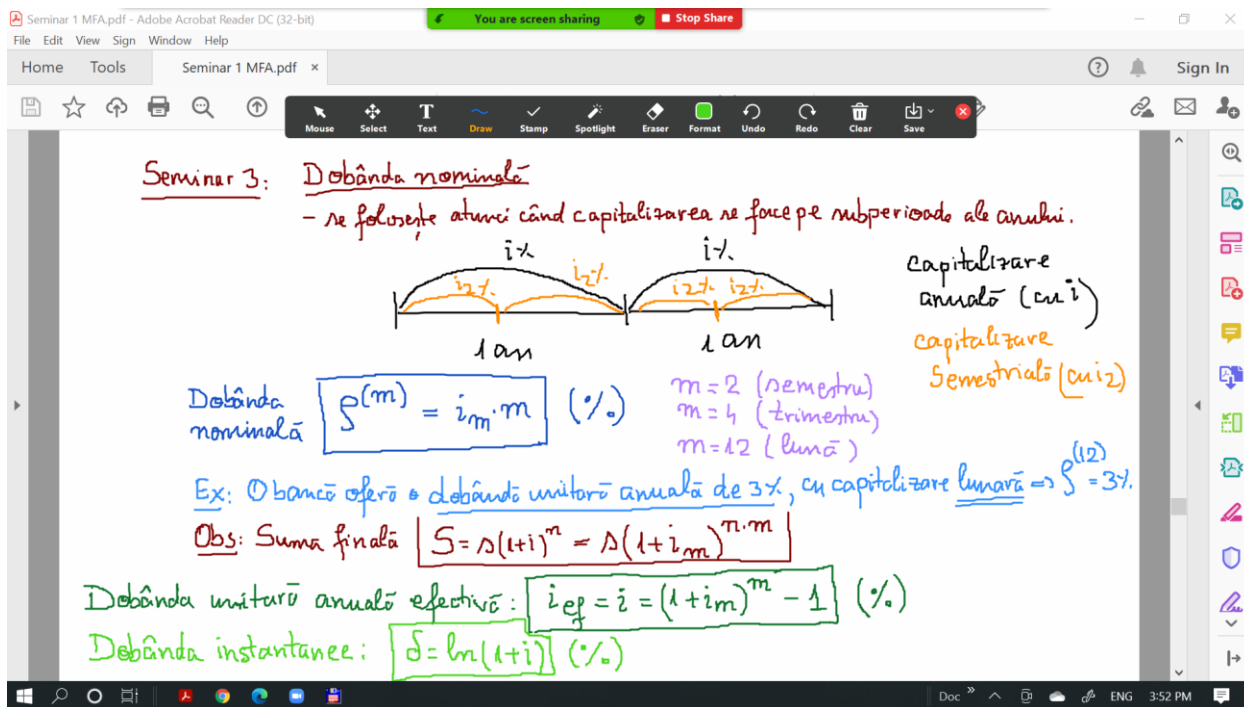 Seminar 1 MFA.pdf - Adobe Acrobat Reader DC (32-bit)
You are screen sharing
Stop Share
File Edit View Sign Window Help
Home Tools Seminar 1 MFA.pdf × Sign In
Mouse Select Text Draw Stamp Spotlight Eraser Format Undo Redo Clear Save
Seminar 3: Dobânda nominală
- se folosește atunci când capitalizarea se face pe subperioade ale anului.
i% i%
i₂% i₂% i₂% i₂%
1 an 1 an
capitalizare
anuală (cu i)
capitalizare
semestrială (cu i₂)
Dobânda
nominală
ρ^(m) = i_m · m (%)
m = 2 (semestru)
m = 4 (trimestru)
m = 12 (lună)
Ex: O bancă oferă o dobândă unitară anuală de 3%, cu capitalizare lunară => ρ^(12) = 3%.
Obs: Suma finală S = s(1+i)^n = s(1+i_m)^(n·m)
Dobânda unitară anuală efectivă: i_ef = i = (1+i_m)^m - 1 (%)
Dobânda instantanee: δ = ln(1+i) (%)
Doc » ENG 3:52 PM